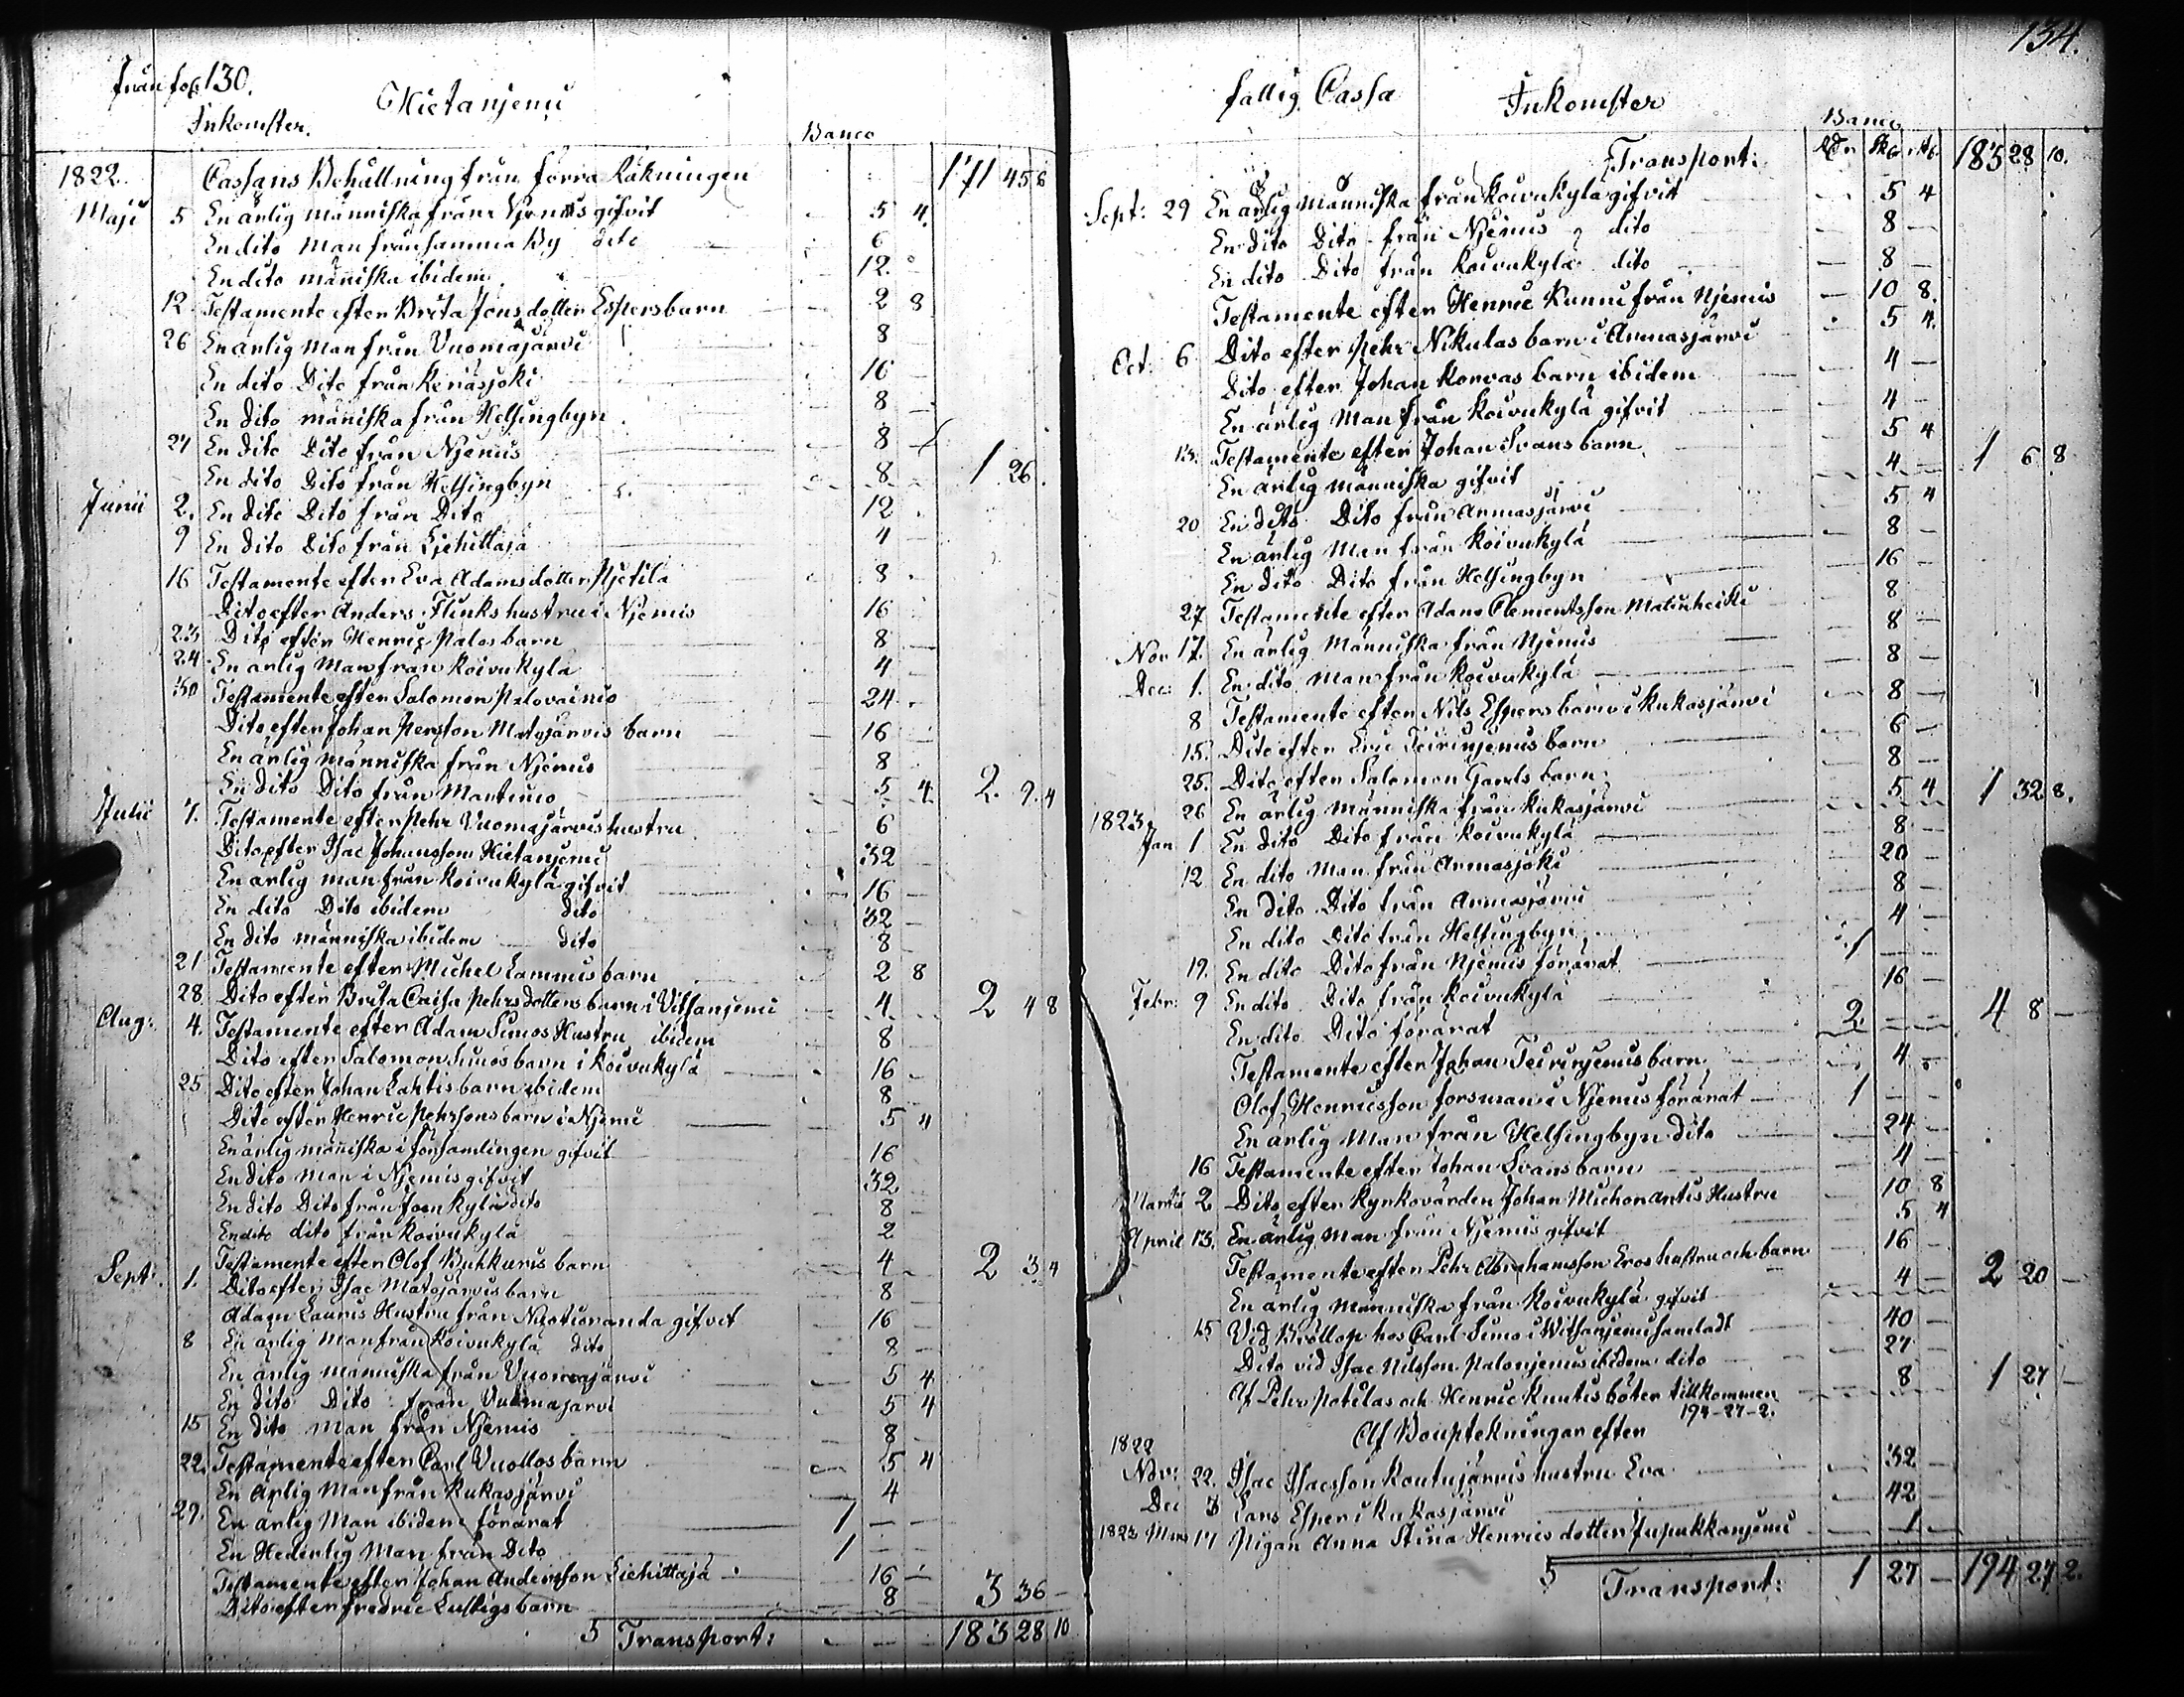 från fol 130.
Hietanjemi
Inkomster.
Banco
1822. Cassans Behållning från förra Räkningen 171 45 6
Maji 5 En ärlig människa från Njemis gifvit 5 4
En dito Man från samma By dito 6
En dito människa ibidem 12 –
12 Testamente efter Brita Jonsdotter Espers barn 2 8
26 En ärlig Man från Vuomajärvi 8
En dito Dito från Keräsjoki 16 –
En dito människa från Helsingbyn 8 –
27 En dito Dito från Njemis 8 –
En dito Dito från Helsingbyn 8 1 26
Junii 2. En dito Dito från Dito 12
9 En dito Dito från Liehittäjä 4
16 Testamente efter Eva Adamsdotter Pjetilä 8
Dito efter Anders Flinks hustru i Njemis 16
23 Dito efter Henric Palos barn 8 –
24 En ärlig Man från Koivukylä 4 –
30 Testamente efter Salomon Palovainio 24
Dito efter Johan Persson Matojärvis barn 16
En ärlig människa från Njemis 8
En dito Dito från Martimo 5 4 2. 9. 4
Julii 7. Testamente efter Pehr Vuomajärvis hustru 6
Dito efter Isac Johansson Hietanjemi 32
En ärlig man från Koivukylä gifvit 16 –
En dito Dito ibidem dito 32
En dito människa ibidem dito 8
21 Testamente efter Michel Lammis barn 2 8
28 Dito efter Brita Caisa Pehrsdotters barn i Vitsanjemi 4 2 4 8
Aug: 4. Testamente efter Adam Simos Hustru ibidem 8
Dito efter Salomon Simos barn i Koivukylä 16
25 Dito efter Johan Lahtis barn ibidem 8
Dito efter Henric Pehrssons barn i Njemi 5 4
En ärlig människa i församlingen gifvit 16
En dito Man i Njemis gifvit 32
En dito Dito från kylä dito 8 –
En dito dito från Koivukylä 2
Testamente efter Olof Buhkuris barn 4 2 3 4
Sept: 1. Dito efter Isac Matojärvis barn 8
Adam Lauris Hustru från gifvit 16 –
8 En ärlig Man från Koivukylä dito 8 –
En ärlig människa från Vuomajärvi 5 4
En dito Dito från Vuomajärvi 5 4
15 En dito Man från Njemis 8 –
22. Testamente efter Carl Vuollos barn 5 4
En ärlig Man från Kukasjärvi 4
29. En ärlig Man ibidem förärat 1 – –
En Hederlig Man från Dito 1 – –
Testamente efter Johan Andersson Liehittäjä 16 –
Dito efter Fredric Lustigs barn 8 3 36 –
5 Transport: 183 28 10
134.
fattig Cassa Inkomster
Banco
Rdr Sk rst
Transport: 183 28 10.
Sept: 29 En ärlig människa från Koivukylä gifvit 5 4
En dito Dito från Njemis dito 8 –
En dito Dito från Koivukylä dito 8 –
Testamente efter Henric Kunni från Njemis 10 8.
Oct: 6 Dito efter Pehr Nikulas barn i Armasjärvi 5 4.
Dito efter Johan Korvas barn ibidem 4 –
En ärlig Man från Koivukylä gifvit 4 –
13. Testamente efter Johan Svans barn 5 4
En ärlig människa gifvit 4 1 6 8
20 En dito Dito från Armasjärvi 5 4
En ärlig Man från Koivukylä 8 –
En dito Dito från Helsingbyn 16 –
27 Testamente efter Adam Clementsson Matinheiki 8
Nov 17. En ärlig Människa från Njemis 8 –
Dec: 1. En dito Man från Koivukylä 8 –
8 Testamente efter Nils Espers barn i Kukasjärvi 8 –
15. Dito efter Eric Teirinjemis barn 6 –
25. Dito efter Salomon Gards barn 8 –
26 En ärlig människa från Kukasjärvi 5 4 1 32 8.
1823.
Jan 1 En dito Dito från Koivukylä 8 –
12 En dito Man från Armasjoki 20 –
En dito Dito från Armasjärvi 8 –
En dito Dito från Helsingbyn 4 –
19. En dito Dito från Njemis förärat 1 – –
Febr: 9 En dito Dito från Koivukylä 16 –
En dito Dito förärat 2 – – 4 8 –
Testamente efter Johan Teirinjemis barn 4 –
Olof Henricsson forsman i Njemis förärat 1 – –
En ärlig Man från Helsingbyn dito 24 –
16 Testamente efter Johan Svans barn 4 –
Martii 2 Dito efter Kyrkovärden Johan Hustru 10 8
April 13. En ärlig Man från Njemis gifvit 5 4
Testamente efter Pehr Abrahamsson Eros hustru och barn 16 –
En ärlig människa från Koivukylä gifvit 4 – 2 20 –
15 Vid Bröllop hos Carl Simo i Witsanjemi samladt 40 –
Dito vid Isac Nilsson Palonjemis ibidem dito 27 –
Af Pehr Potilas och Henric Knutis böter tillkommen 8 1 27 –
194–27–2.
Af Bouptekningar efter
1822
Nov: 22. Isac Isacsson Koutujärvis hustru Eva 32 –
Dec 3 Lars Esper i Kukasjärvi 42 –
1823 Mars 17 Pigan Anna Stina Henricsdotter Pupukkanjemi 1 –
5 Transport: 1 27 – 194 27 2.